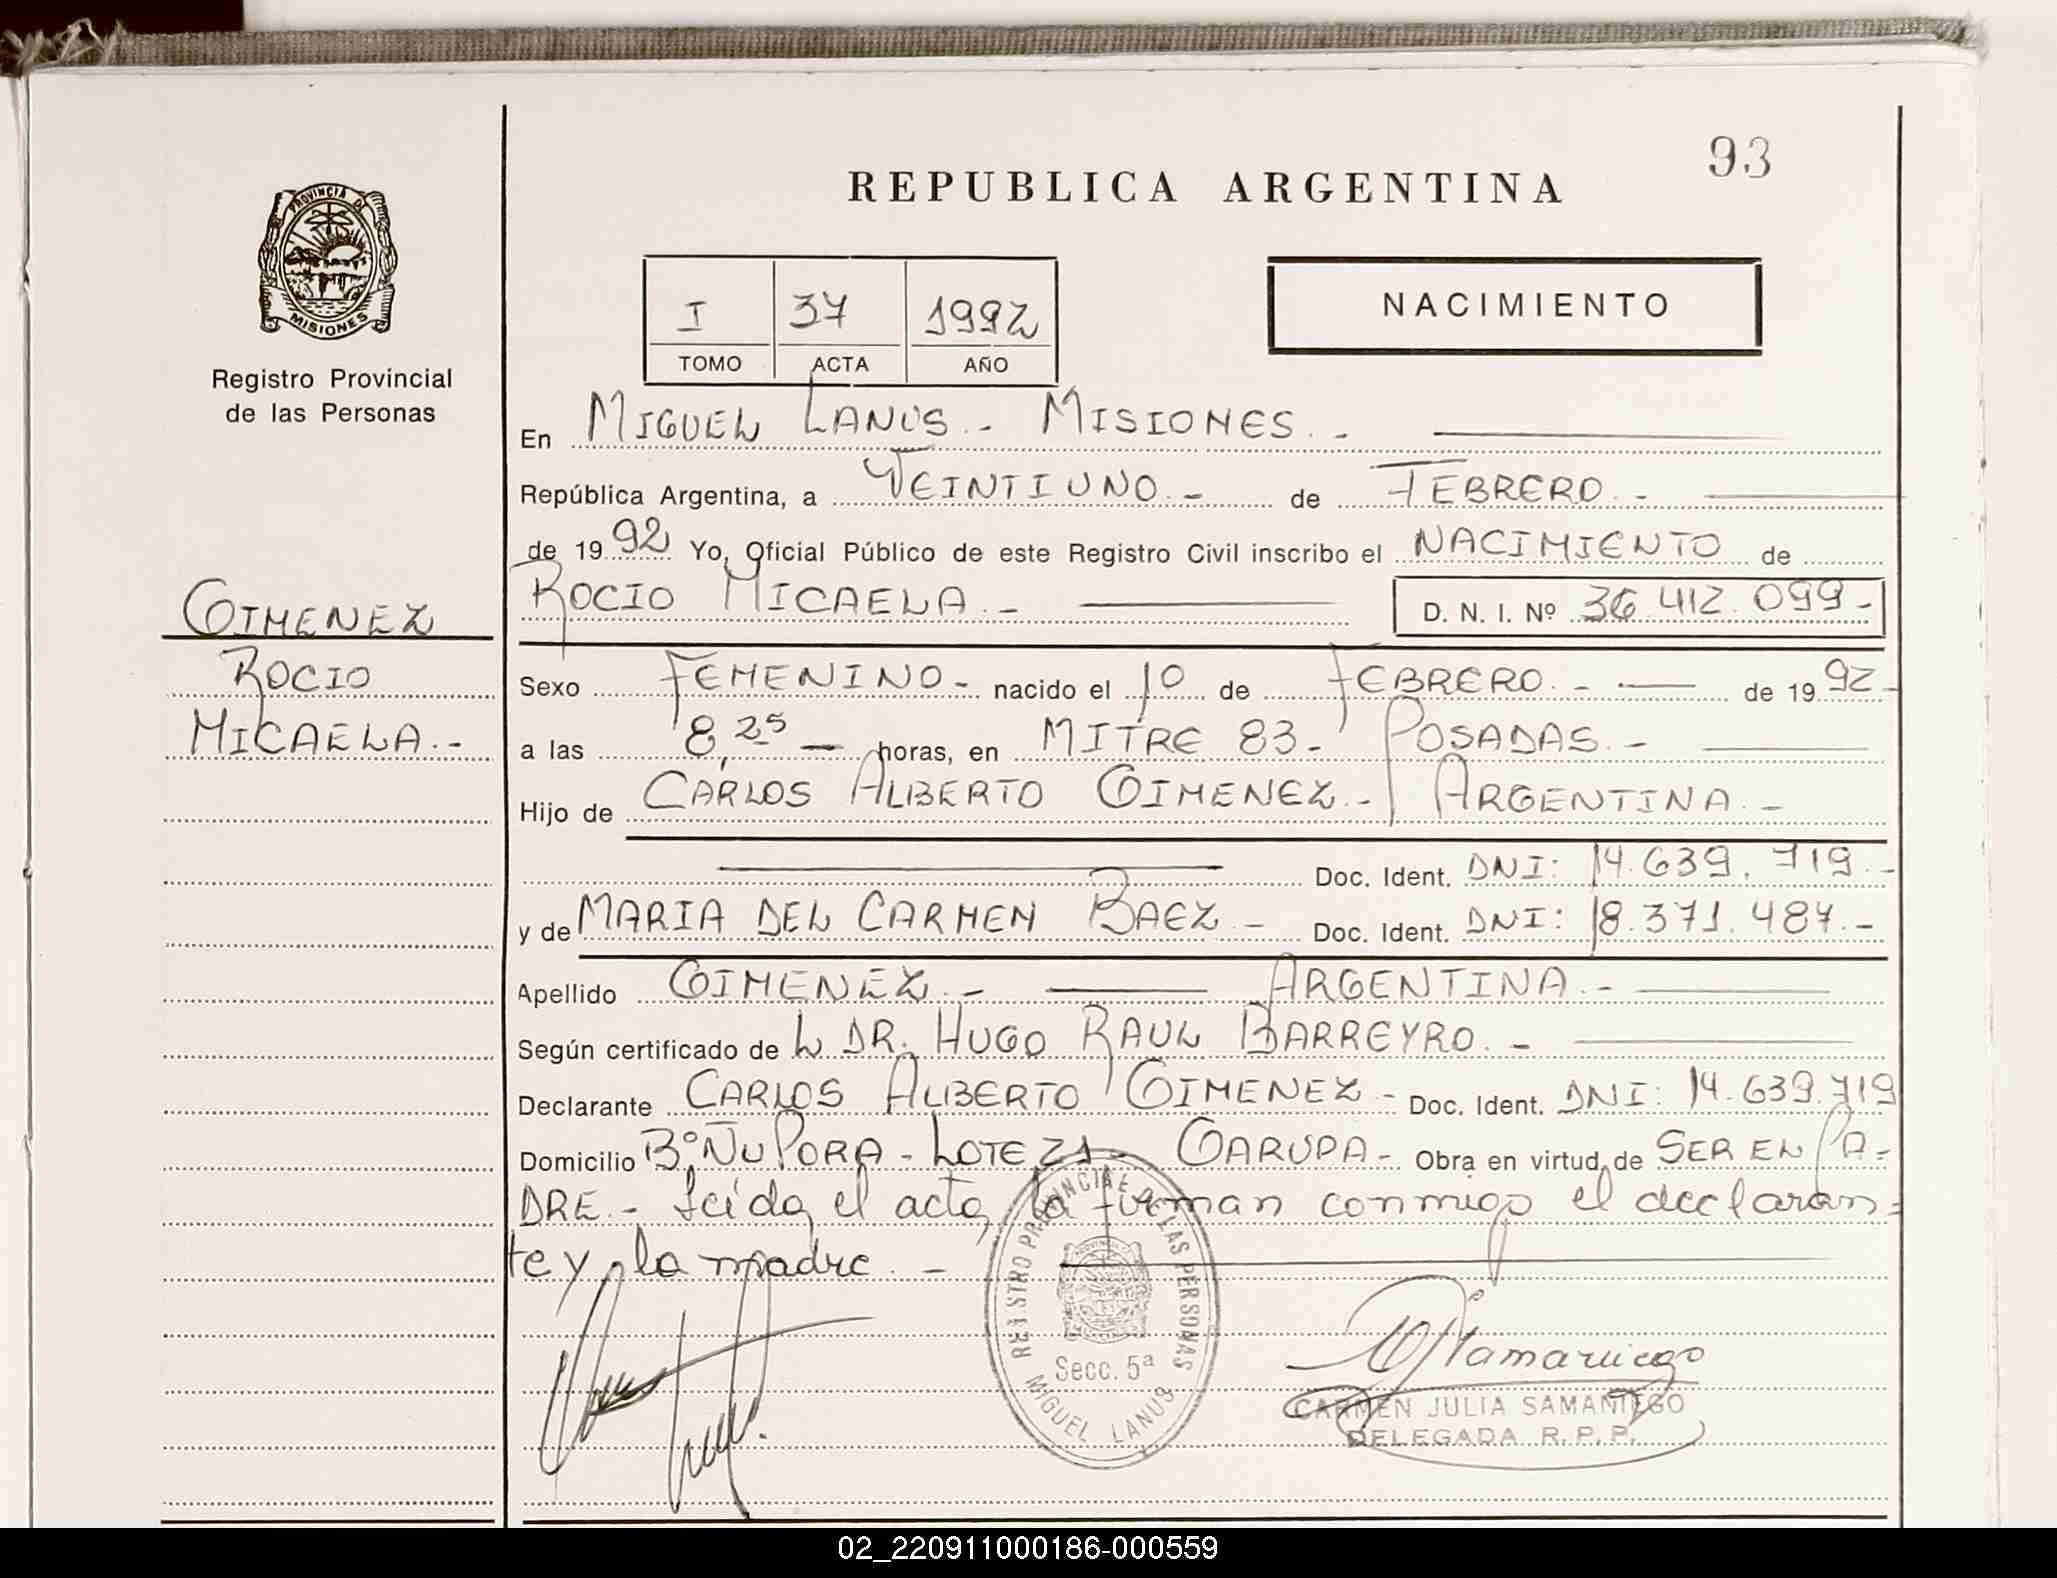 93
REPUBLICA ARGENTINA
PROVINCIA DE
MISIONES
Registro Provincial
de las Personas
I 37 1992
TOMO ACTA AÑO
NACIMIENTO
En MIGUEL LANUS.- MISIONES.-
República Argentina, a VEINTIUNO.- de FEBRERO.-
de 1992 Yo, Oficial Público de este Registro Civil inscribo el NACIMIENTO de
ROCIO MICAELA.- D. N. I. Nº 36.412.099-
GIMENEZ
ROCIO
MICAELA.-
Sexo FEMENINO- nacido el 10 de FEBRERO.- de 1992-
a las 8,25 horas, en MITRE 83- POSADAS.-
Hijo de CARLOS ALBERTO GIMENEZ.- ARGENTINA.-
Doc. Ident. DNI: 14.639.719.-
y de MARIA DEL CARMEN BAEZ- Doc. Ident. DNI: 18.371.487.-
Apellido GIMENEZ.- ARGENTINA.-
Según certificado de L DR. HUGO RAUL BARREYRO.-
Declarante CARLOS ALBERTO GIMENEZ- Doc. Ident. DNI: 14.639.719
Domicilio Bº ÑU PORA- LOTE 21- GARUPA- Obra en virtud de SER EL PA-
DRE.- Leída el acta, la firman conmigo el declaran=
te y la madre.-
REGISTRO PROVINCIAL DE LAS PERSONAS
Secc. 5ª
MIGUEL LANUS
CARMEN JULIA SAMANIEGO
DELEGADA R.P.P.
02_220911000186-000559